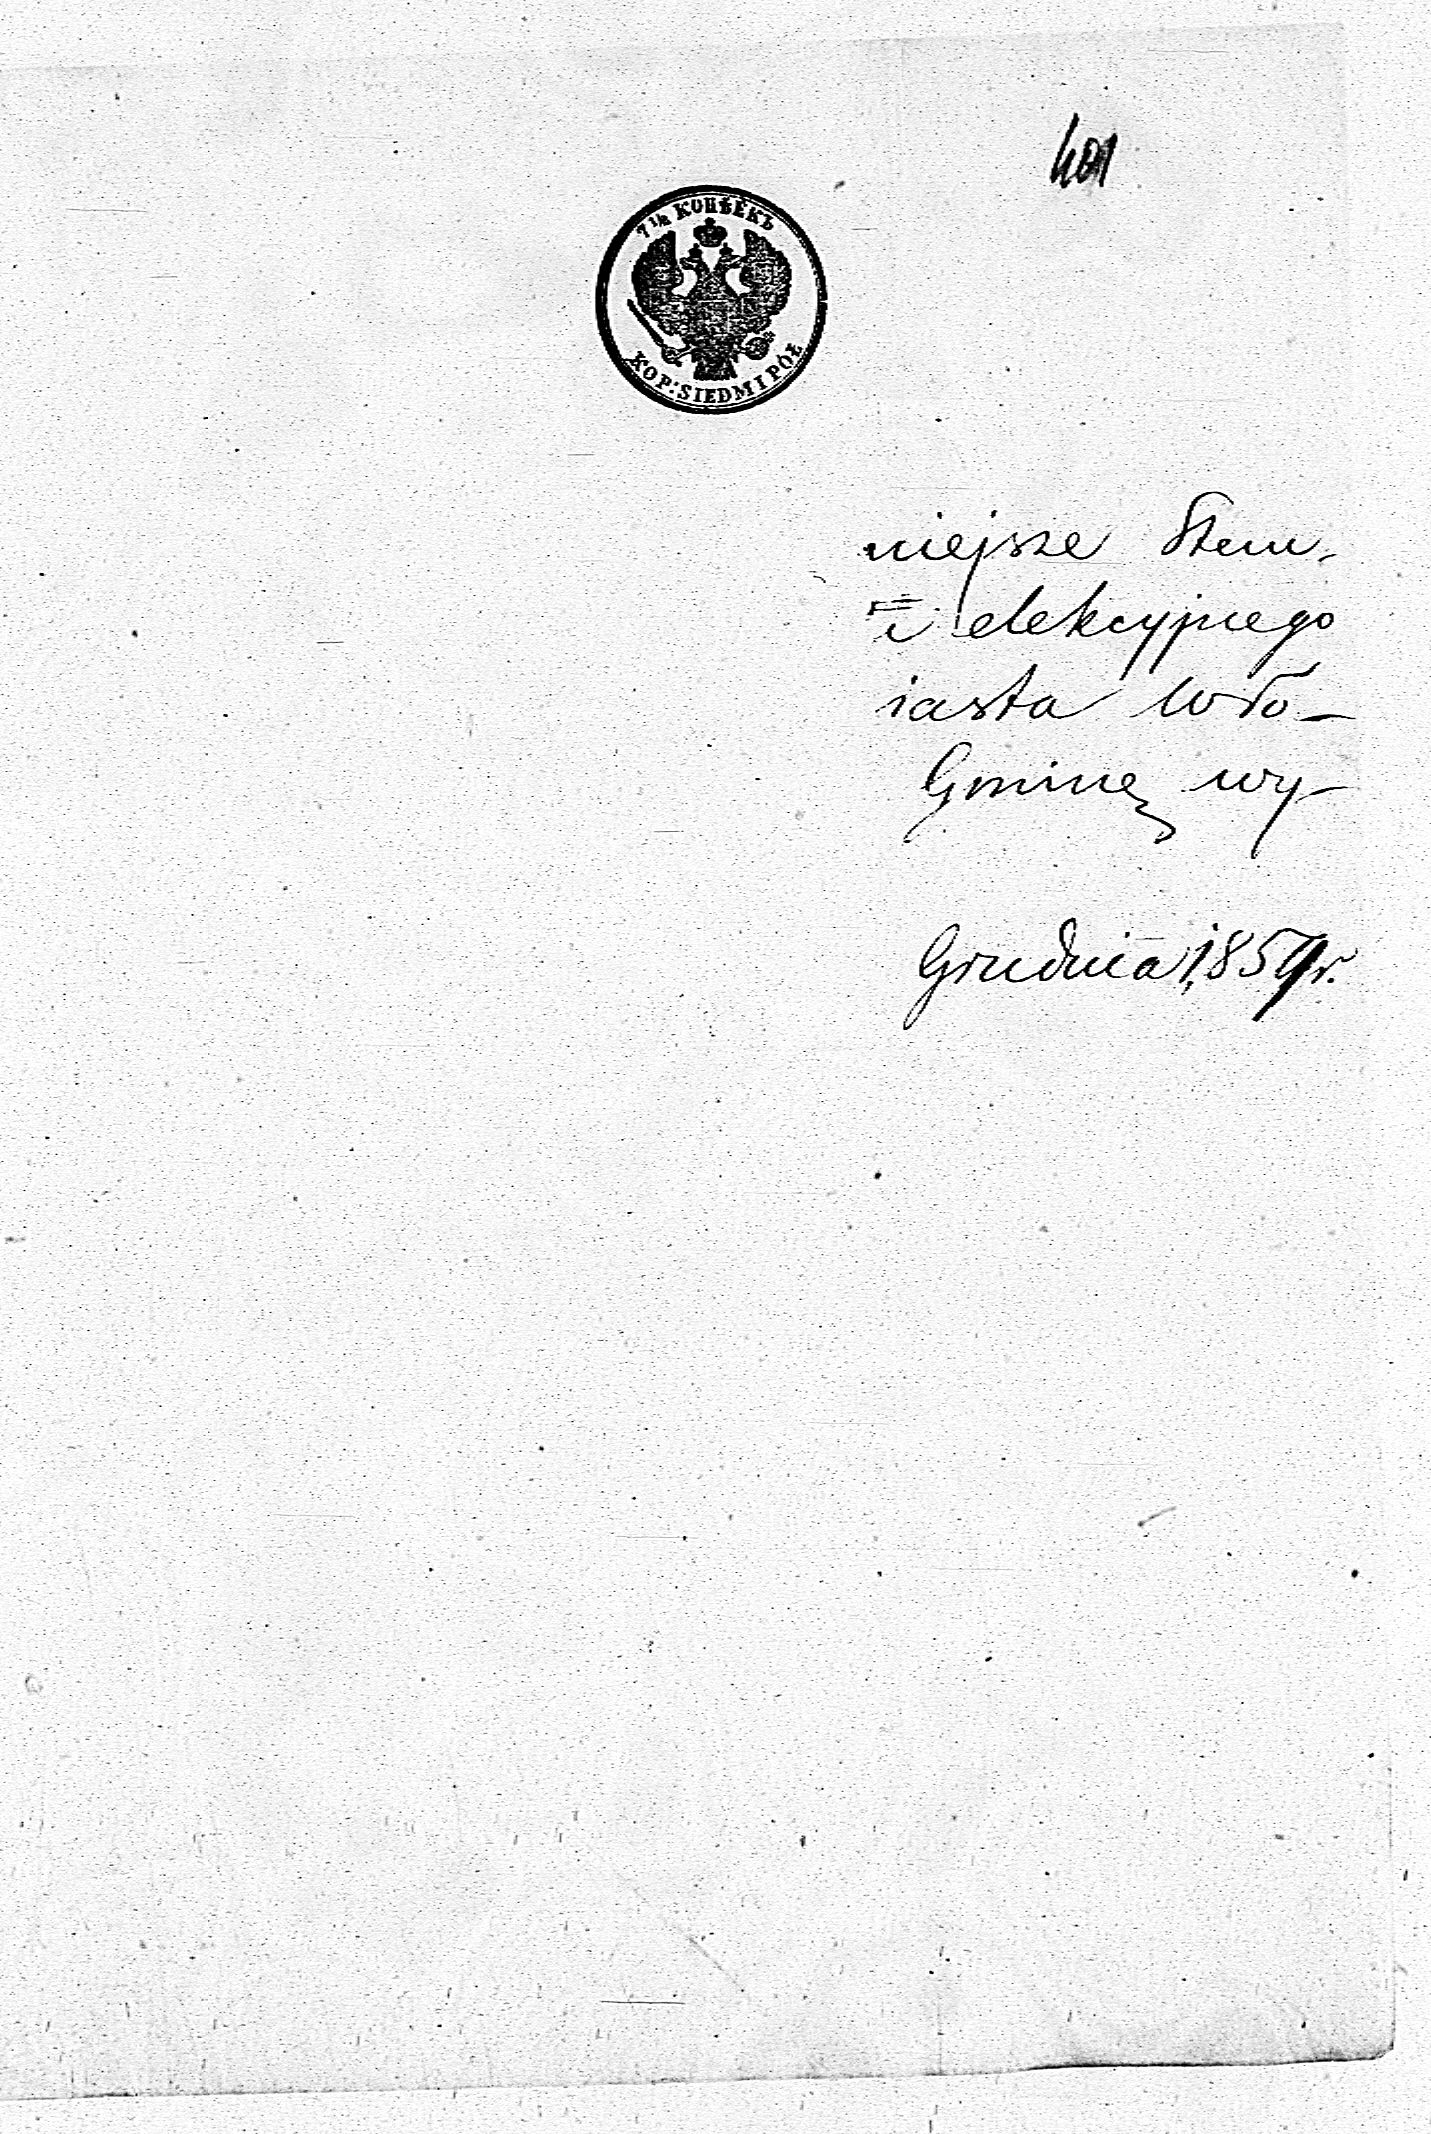 401
7½ КОПѢЕКЪ
KOP: SIEDM I PÓŁ
niejsze Stem,
i elekcyjnego
iasta Wło-
Gminę wy-
Grudnia 1859r.